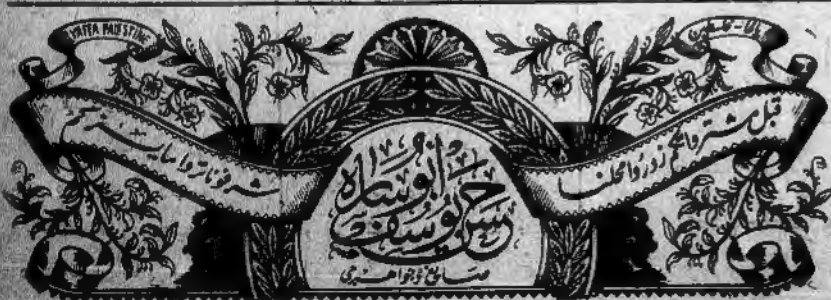 YAFFA PALESTINE
يافا - فلسطين
قبل مشترواتكم زوروا محلنا
شرفونا تروا ما يسركم
حسن يوسف ابو ساره
صايغ وجواهرجي